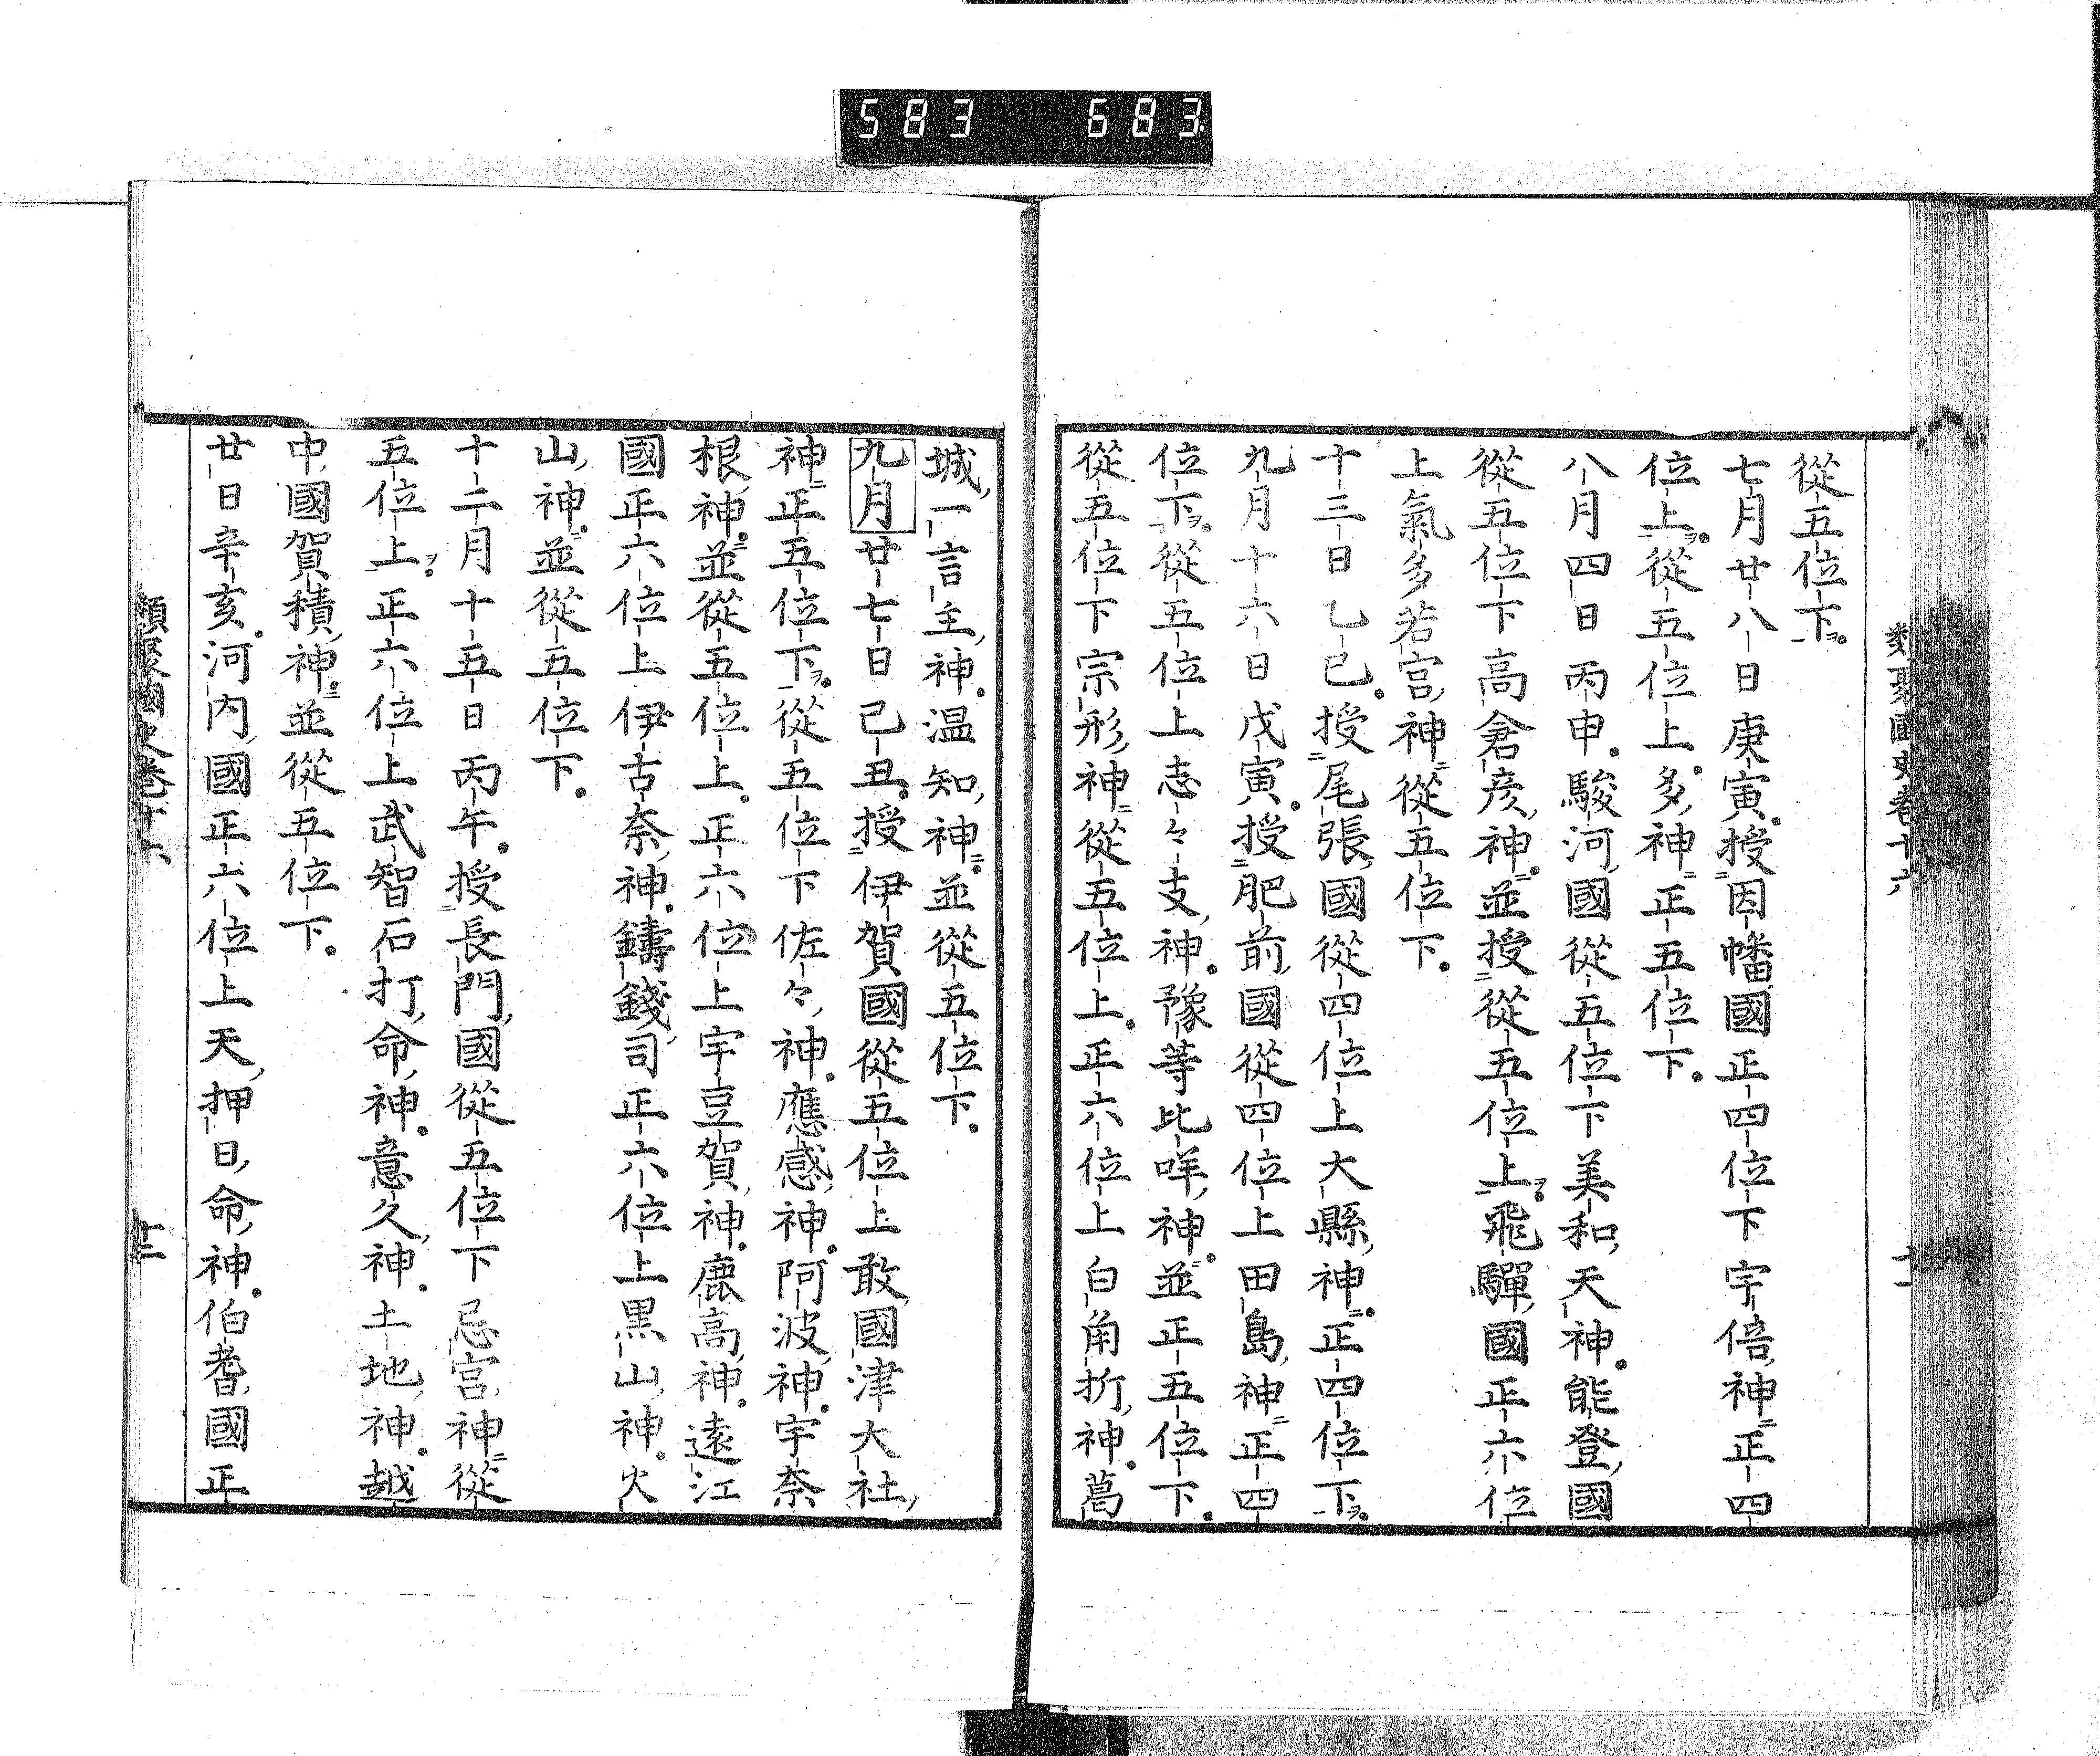 583 683
類聚國史卷十六
十一
從五位下
七月廿八日庚寅授因幡國正四位下宇倍神正四
位上從五位上多神正五位下
八月四日丙申駿河國從五位下美和天神能登國
從五位下高倉彦神並授從五位上飛驒國正六位
上氣多若宮神從五位下
十三日乙巳授尾張國從四位上大縣神正四位下
九月十六日戊寅授肥前國從四位上田島神正四
位下從五位上志々支神豫等比咩神並正五位下
從五位下宗形神從五位上正六位上白角折神葛
城一言主神温知神並從五位下
九月廿七日己丑授伊賀國從五位上敢國津大社
神正五位下從五位下佐々神應感神阿波神宇奈
根神並從五位上正六位上宇豆賀神鹿高神遠江
國正六位上伊古奈神鑄錢司正六位上黒山神火
山神並從五位下
十二月十五日丙午授長門國從五位下忌宮神從
五位上正六位上武智石打命神意久神土地神越
中國賀積神並從五位下
廿日辛亥河内國正六位上天押日命神伯耆國正
類聚國史卷十六
十二